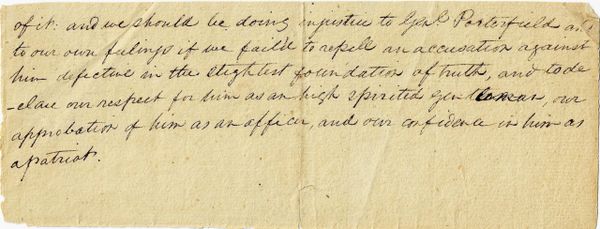 of it: and we should be doing injustice to Genl. Porterfield and
to our own filings if we faild to repell an accusation against
him defective in the slightest foundation of truth, and to de
-clare our respect for him as an high spirited gentleman, our
approbation of him as an officer, and our confidence in him as
a patriot.